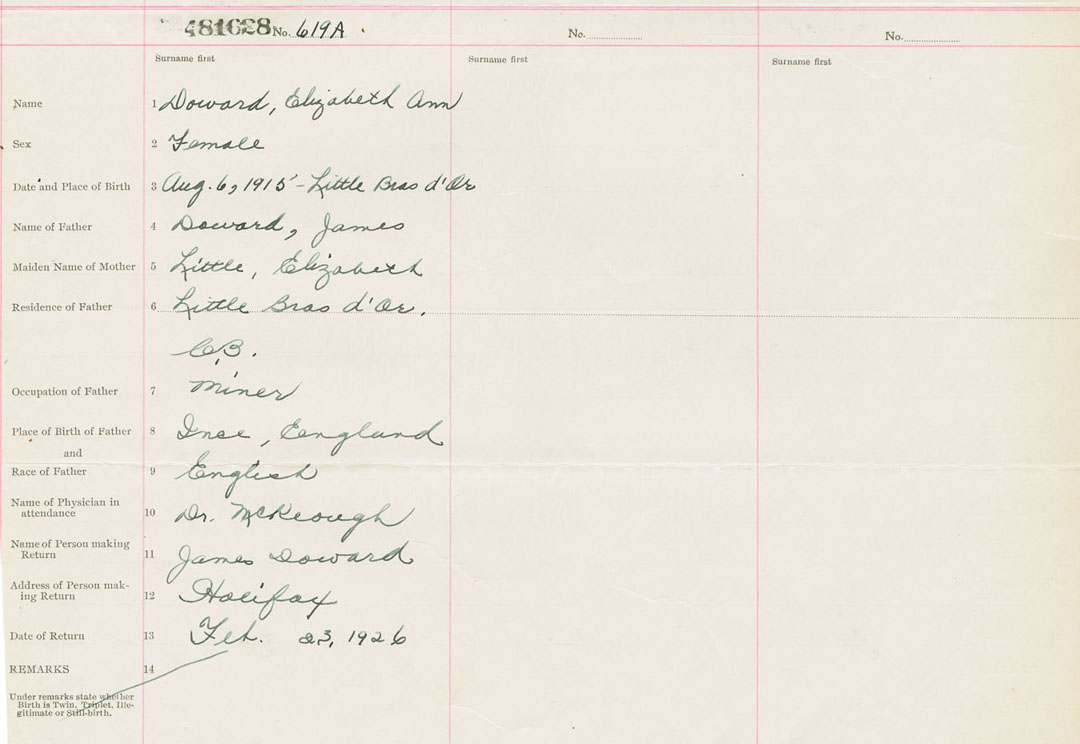 481628 No. 619A No. No.
Surname first Surname first Surname first
Name 1 Doward, Elizabeth Ann
Sex 2 Female
Date and Place of Birth 3 Aug. 6, 1915 - Little Bras d'Or
Name of Father 4 Doward, James
Maiden Name of Mother 5 Little, Elizabeth
Residence of Father 6 Little Bras d'Or.
C.B.
Occupation of Father 7 Miner
Place of Birth of Father 8 Ince, England
and
Race of Father 9 English
Name of Physician in
attendance 10 Dr. McKeough
Name of Person making
Return 11 James Doward
Address of Person mak-
ing Return 12 Halifax
Date of Return 13 Feb. 23, 1926
REMARKS 14
Under remarks state whether
Birth is Twin, Triplet, Ille-
gitimate or Still-birth.